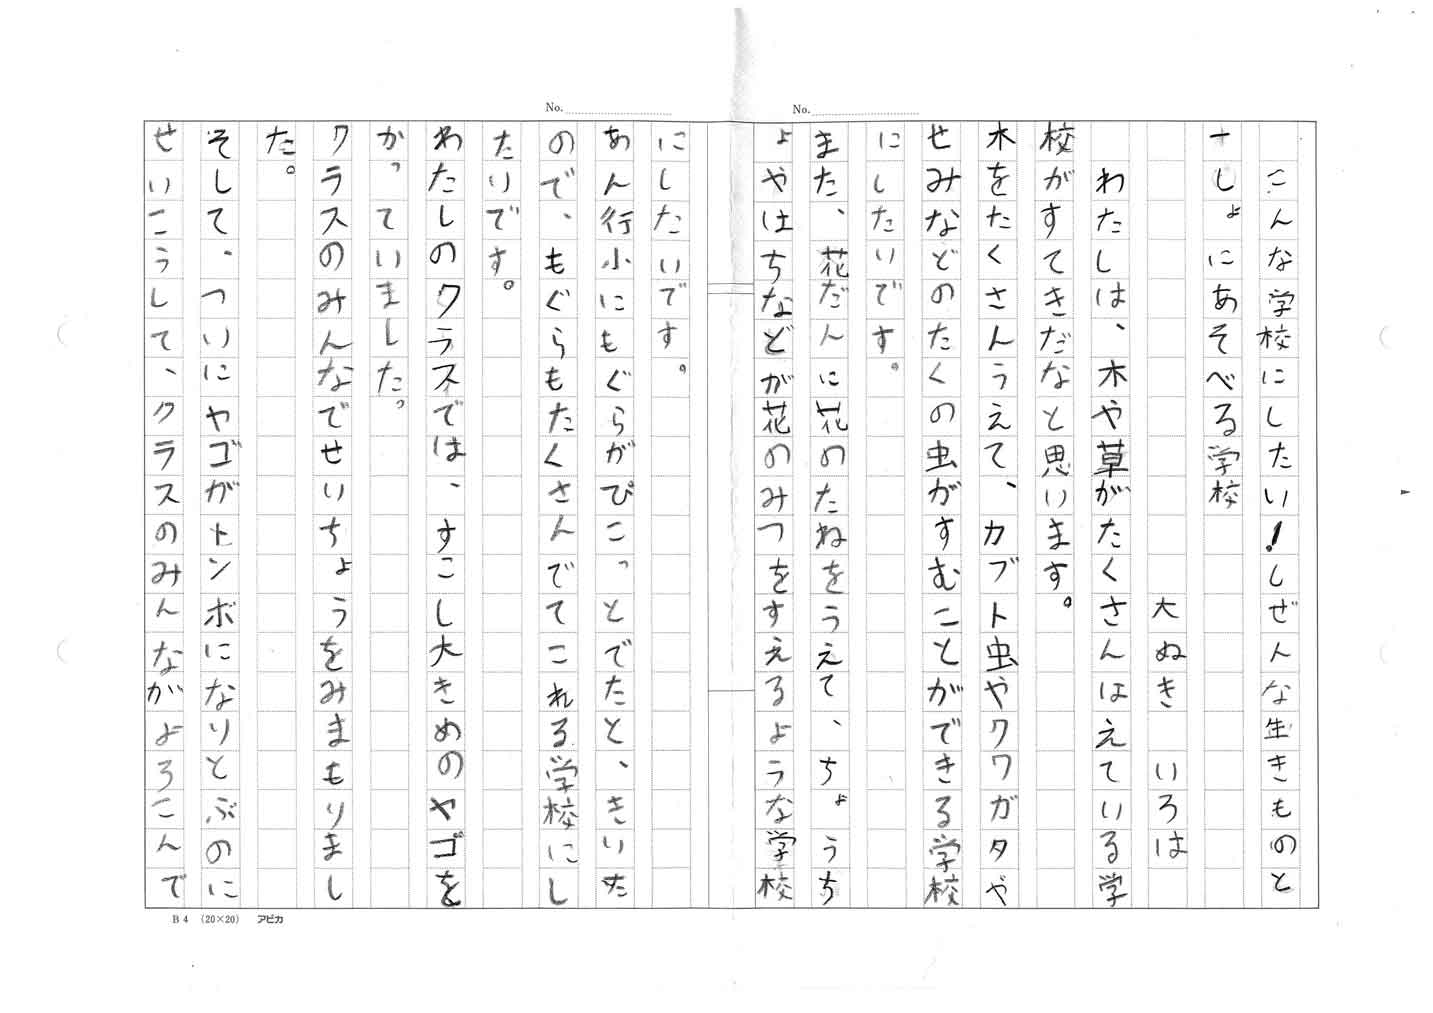 No.
No.
こんな学校にしたい!しぜんな生きものと
一しょにあそべる学校
大ぬき いろは
わたしは、木や草がたくさんはえている学
校がすてきだなと思います。
木をたくさんうえて、カブト虫やクワガタや
せみなどのたくの虫がすむことができる学校
にしたいです。
また、花だんに花のたねをうえて、ちょうち
ょやはちなどが花のみつをすえるような学校
にしたいです。
あん行小にもぐらがぴこっとでたと、きいた
ので、もぐらもたくさんでてこれる学校にし
たりです。
わたしのクラスでは、すこし大きめのヤゴを
かっていました。
クラスのみんなでせいちょうをみまもりまし
た。
そして、ついにヤゴがトンボになりとぶのに
せいこうして、クラスのみんながよろこんで
B4 (20×20) アピカ